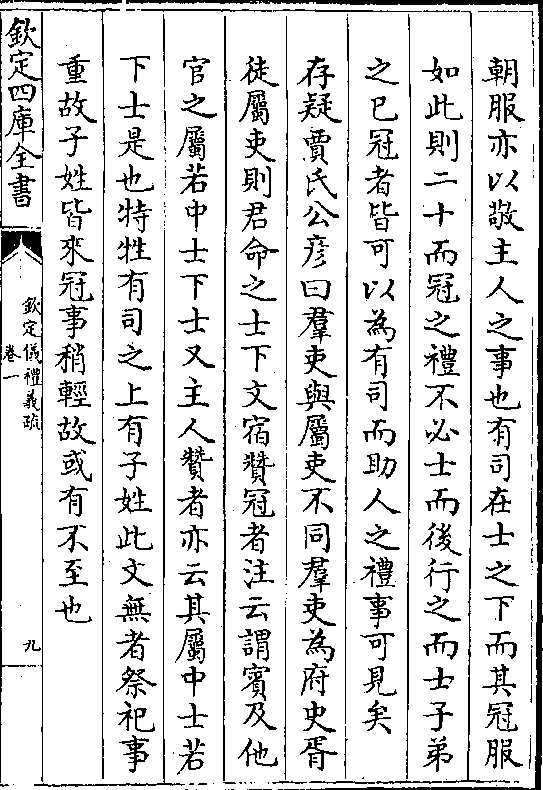 朝服亦以敬主人之事也有司在士之下而其冠服
如此則二十而冠之禮不必士而後行之而士子弟
之已冠者皆可以為有司而助人之禮事可見矣
存疑賈氏公彦曰羣吏與屬吏不同羣吏為府史胥
徒屬吏則君命之士下文宿贊冠者注云謂賓及他
官之屬若中士下士又主人贊者亦云其屬中士若
下士是也特牲有司之上有子姓此文無者祭祀事
重故子姓皆來冠事稍輕故或有不至也
欽定四庫全書
欽定儀禮義疏
卷一
九